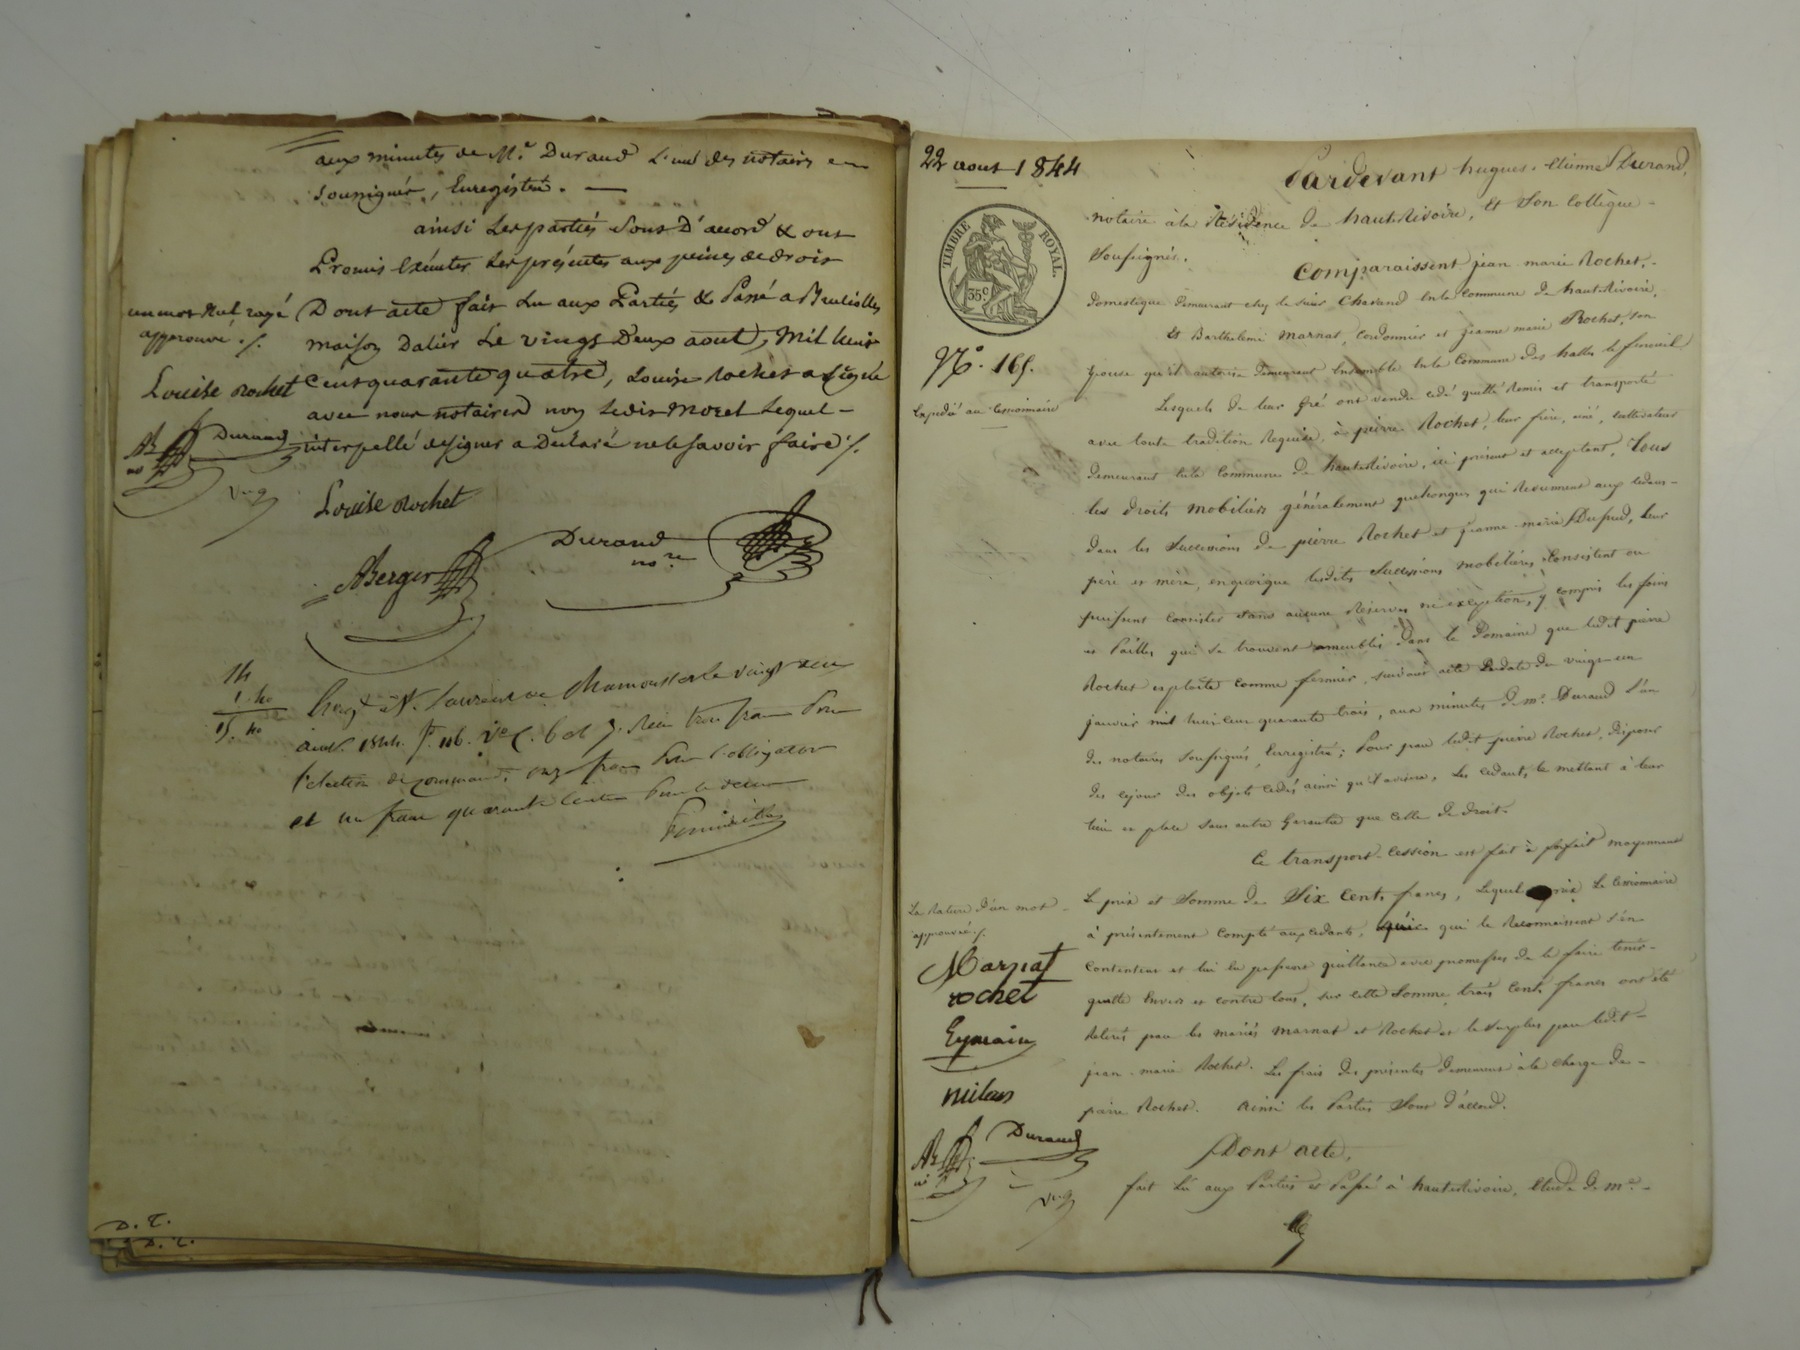 aux minutes de M.e Durand l'un des notaires en
soussignés, Enregistré. —
ainsi les parties sont D'accord & ont
Promis Exécuter les présentes aux peines de droit
Dont acte fait Lu aux Parties & Passé a Brulioles
maison Dalier Le vingt Deux aout, Mil huit
cent quarante quatre, Louise Rochet a signé
avec nous notaires non ledit Morel Lequel —
interpellé de signer a Déclaré ne le savoir faire ./.
un mot Nul rayé
approuvé ./.
Louise Rochet
AB
no
Durand
Louise Rochet
ABerger
Durand
no.re
14
1. 40
15. 40
Enreg.é à St. Laurent de Chamousset le vingt deux
août 1844. f.o 116. V.o C. 6 et 7. Reçu trois francs Pour
l'élection de command, onze francs Pour l'obligation
et un franc quarante centimes Pour le décime
D. T.
D. T.
22 aout 1844
TIMBRE ROYAL.
35c
N.o 165.
Expédié au cessionnaire
Pardevant hugues-Etienne Durand,
notaire à la Résidence de hauterivoire, Et Son Collègue —
Soussignés.
Comparaissent jean marie Rochet, —
domestique demeurant chez le sieur Chavand en la Commune de hauterivoire,
Et Barthelemi Marnat, Cordonnier et jeanne marie Rochet, son
épouse qu'il autorise demeurant Ensemble en la Commune des halles le fenouil
Lesquels de leur gré ont vendu cédé quitté Remis et transporté
avec toute tradition Requise, à pierre Rochet, leur frère, ainé, cultivateur
demeurant en la Commune de hauterivoire, ici présent et acceptant, Tous
les droits mobiliers généralement quelconques qui Reviennent aux cédans —
dans les Successions de pierre Rochet et jeanne-marie Dupud, leur
père et mère, en quoique lesdites Successions mobilières Consistent ou
puissent consister sans aucune Réserve ni exception, y compris les foins
et Pailles qui se trouvent ameublés dans le Domaine que ledit pierre
Rochet exploite comme fermier, suivant acte En date du vingt-un
janvier mil huit cent quarante trois, aux minutes de M.e Durand l'un
des notaires soussignés, Enregistré; Pour par ledit pierre Rochet, disposer
dès ce jour des objets cédés ainsi qu'il avisera, Les cédants, le mettant à leur
lieu et place sans autre Garantie que celle de droit.
Ce transport-Cession est fait à forfait moyennant
Le prix et Somme de Six Cents francs, Lequel prix Le Cessionnaire
à présentement compté aux cédants, qui le Reconnaissent s'en
contentent et lui en passent quittance avec promesses de le faire tenir —
quitte Envers et contre tous, sur cette Somme, trois Cents francs ont été
Retirés par les mariés Marnat et Rochet et le surplus par ledit —
jean-marie Rochet. Les frais des présentes demeurent à la Charge de —
pierre Rochet. Ainsi les Parties Sont d'accord.
Dont Acte,
fait Lu aux Parties et Passé à hauterivoire, Etude de M.e —
La Rature d'un mot —
approuvée ./.
Marnat
rochet
Eymain
milan
AB
no
Durand